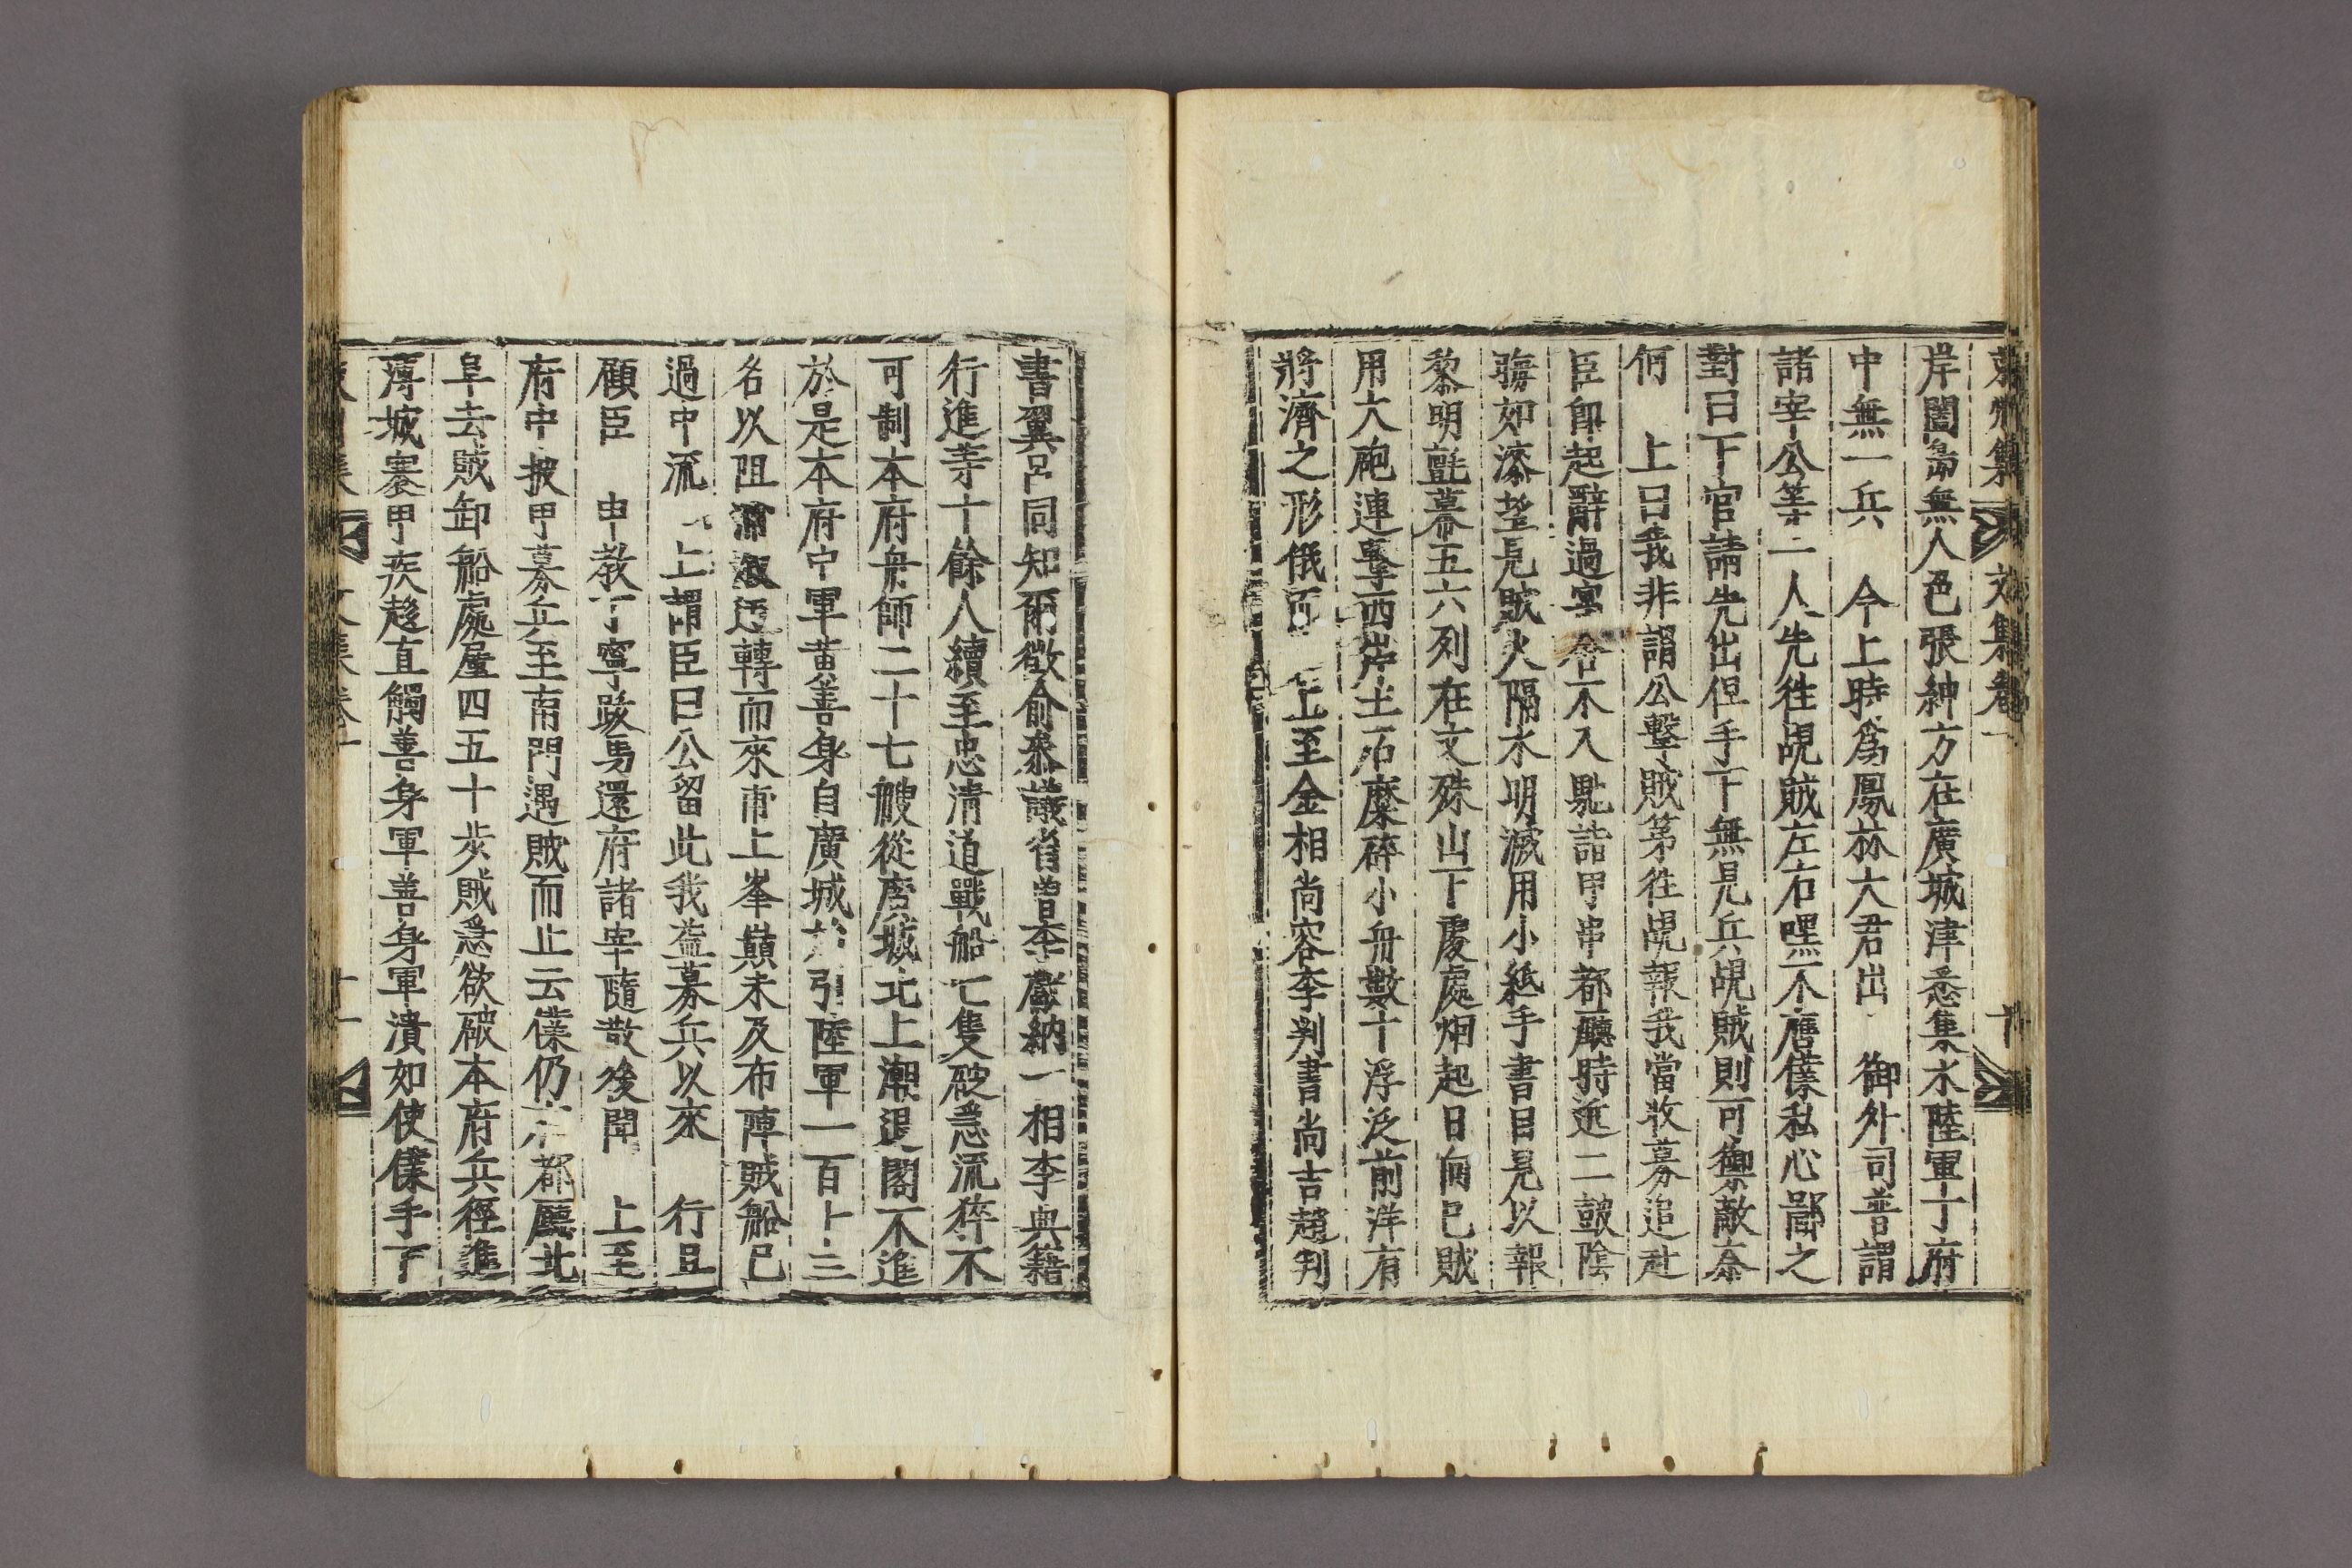 東州集 文集卷一 十
岸闃焉無人邑張紳方在廣城津悉集水陸軍丁府
中無一兵 今上時爲鳳林大君出 御外司普謂
諸宰公等二人先徃覘賊左右嘿不應僕私心鄙之
對曰下官請先出但手下無見兵覘賊則可禦敵奈
何 上曰我非謂公擊賊第徃覘報我當收募追赴
臣卽起辭過寓舍不入駈詣甲串都廳時近二鼓陰
霧如漆望見賊火隔水明滅用小紙手書目見以報
黎明氈幕五六列在文殊山下處處烟起日向巳賊
用大砲連擊西岸土石糜碎小舟數十浮泛前洋有
將濟之形俄而 上至金相尚容李判書尚吉趙判
書翼呂同知爾徵俞參議省曾李獻納一相李典籍
行進等十餘人續至忠清道戰船七隻破急流猝不
可制本府舟師二十七艘從廣城北上潮退閣不進
於是本府中軍黃善身自廣城引陸軍一百十三
名以阻迤轉而來甫上峯巔未及布陣賊船已
過中流 上謂臣曰公留此我盍募兵以來 行且
顧臣 申教丁寧跋馬還府諸宰隨散後聞 上至
府中披甲募兵至南門遇賊而止云僕仍在都廳北
阜去賊卸船處廑四五十步賊急欲破本府兵徑進
薄城褰甲疾趍直觸善身軍善身軍潰如使僕手下
東州集 文集卷一 十一